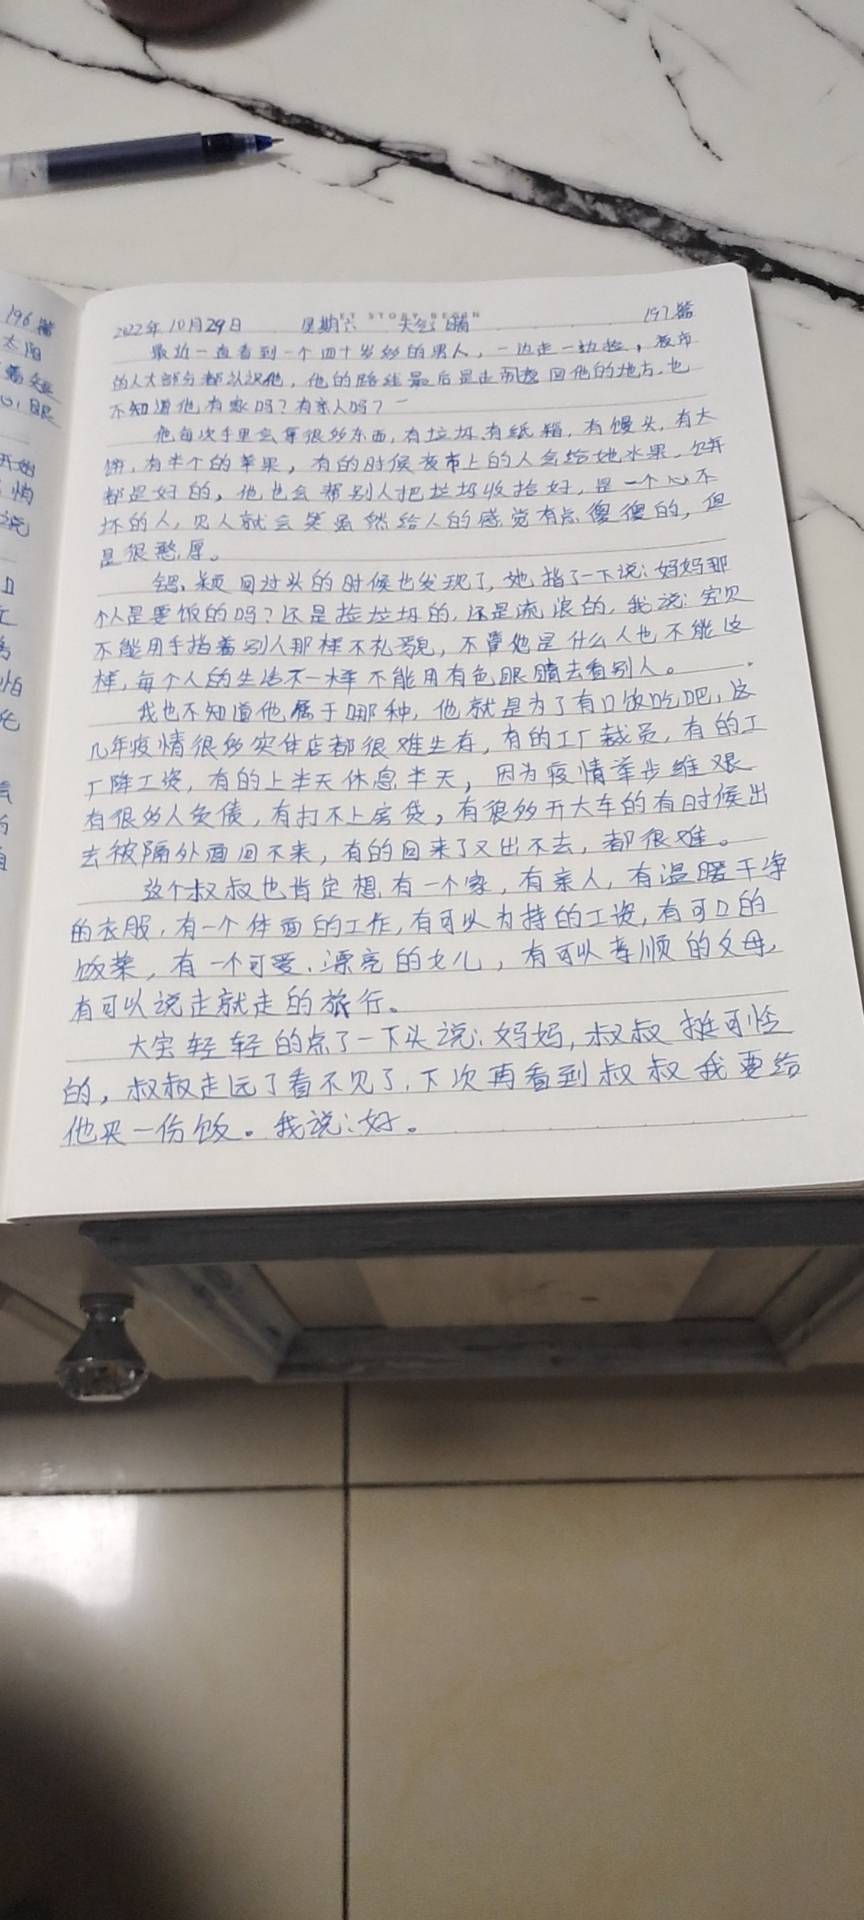 2022年10月29日 星期六 天气：晴 197篇
最近一直看到一个四十岁多的男人，一边走一边捡，夜市
的人大部分都认识他，他的路线最后是走 回他的地方，也
不知道他有家吗？有亲人吗？
他每次手里会拿很多东西，有垃圾，有纸箱，有馒头，有大
饼，有半个的苹果，有的时候夜市上的人会给她水果，饼
都是好的，他也会帮别人把垃圾收拾好，是一个心不
坏的人，见人就会笑虽然给人的感觉有点傻傻的，但
是很憨厚。
颖回过头的时候也发现了，她指了一下说：妈妈那
个人是要饭的吗？还是捡垃圾的，还是流浪的，我说：宝贝
不能用手指着别人那样不礼貌，不管他是什么人也不能这
样，每个人的生活不一样不能用有色眼睛去看别人。
我也不知道他属于哪种，他就是为了有口饭吃吧，这
几年疫情很多实体店都很难生存，有的工厂裁员，有的工
厂降工资，有的上半天休息半天，因为疫情举步维艰
有很多人负债，有打不上房贷，有很多开大车的有时候出
去被隔外面回不来，有的回来了又出不去，都很难。
这个叔叔也肯定想有一个家，有亲人，有温暖干净
的衣服，有一个体面的工作，有可以为持的工资，有可口的
饭菜，有一个可爱、漂亮的女儿，有可以孝顺的父母，
有可以说走就走的旅行。
大宝轻轻的点了一下头说：妈妈，叔叔挺可怜
的，叔叔走远了看不见了，下次再看到叔叔我要给
他买一份饭。我说：好。
196篇
太阳
心，眼
开始
说
怕